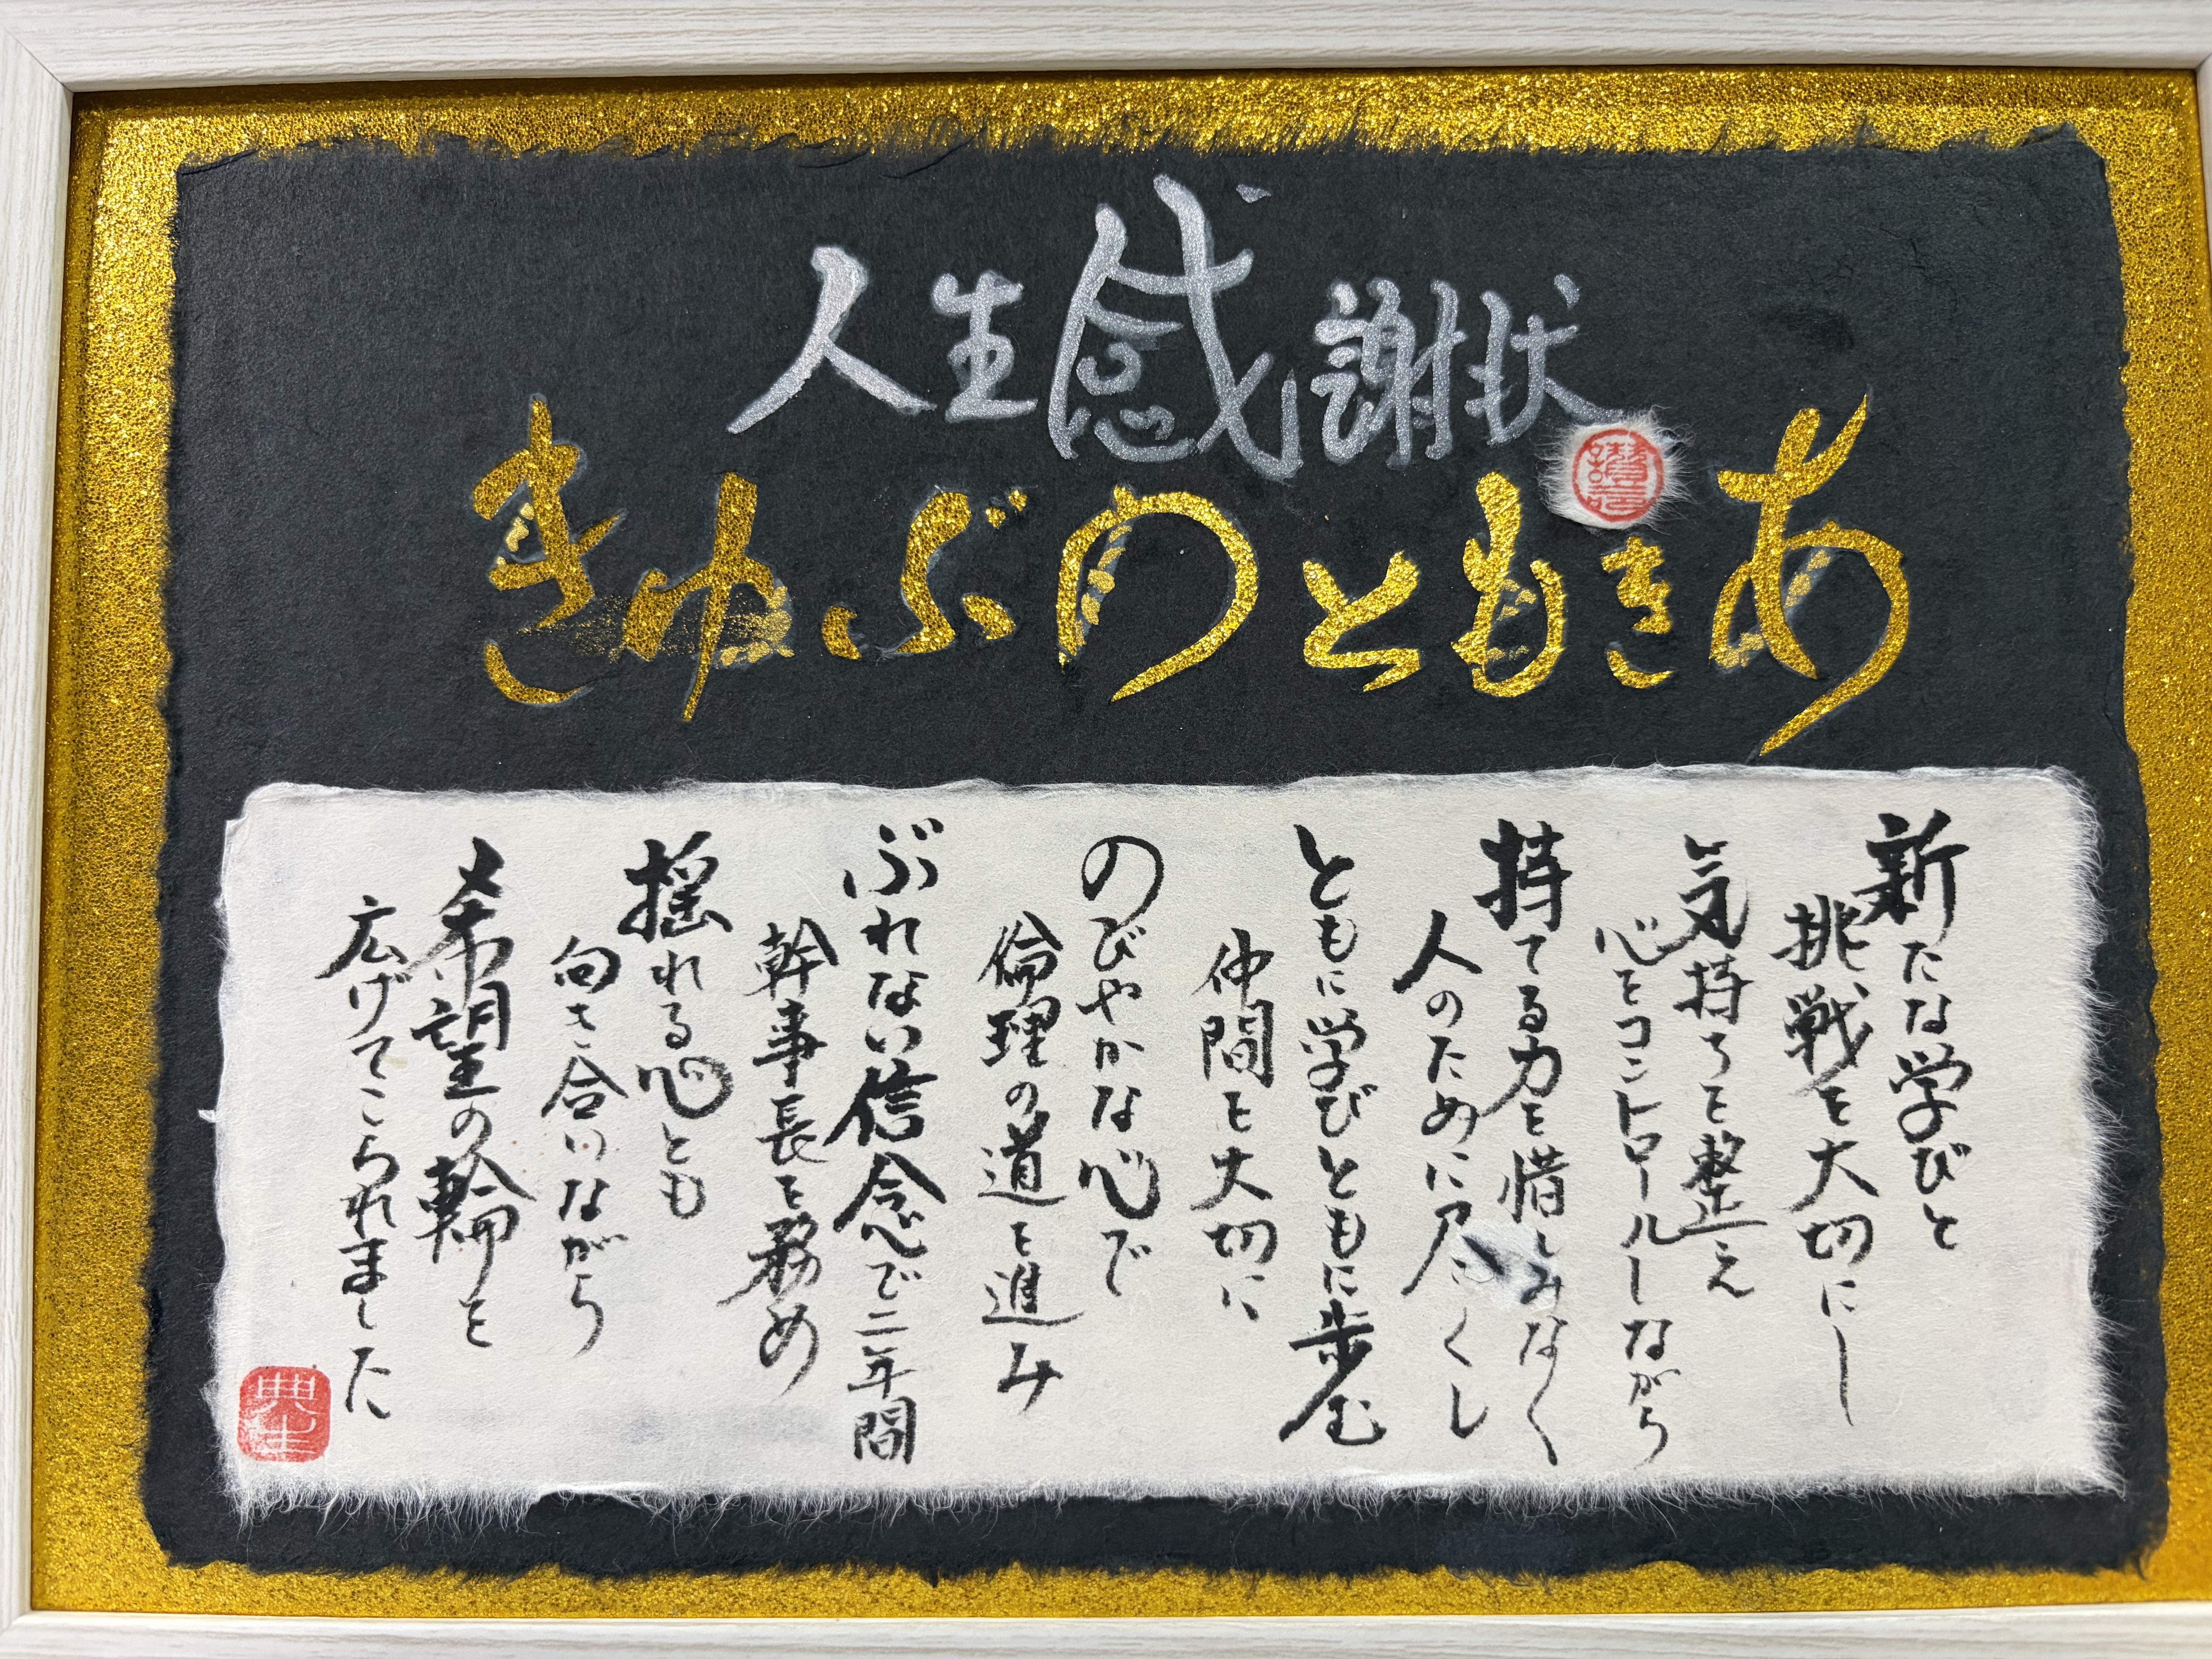 人生感謝状
あきもとのぶゆき
新たな学びと
挑戦を大切にし
気持ちを整え
心をコントロールしながら
持てる力を惜しみなく
人のために尽くし
ともに学びともに歩む
仲間を大切に
のびやかな心で
倫理の道を進み
ぶれない信念で二年間
幹事長を務め
揺れる心とも
向き合いながら
希望の輪を
広げてこられました
典生